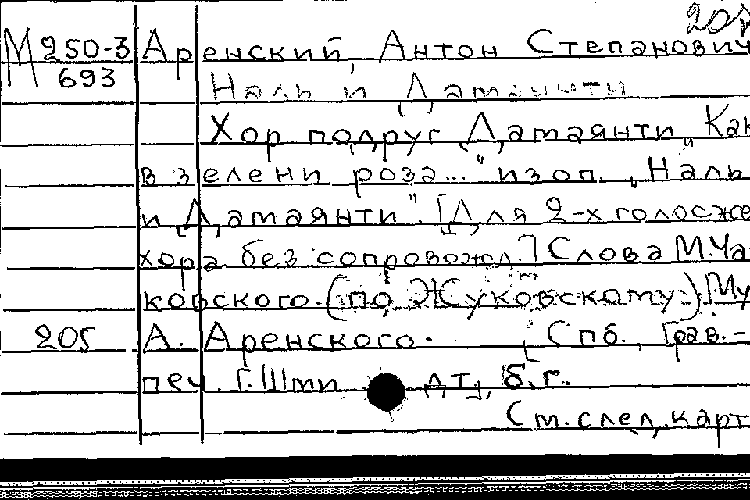 205
М 250-3 Аренский, Антон Степанович
693
Наль и Дамаянти
Хор подруг Дамаянти „Как
в зелени роза..." из оп. „Наль
и Дамаянти". [Для 2-х голос. же
хора без сопровожд.] Слова М. Чай
ковского. (по Жуковскому). Му
205 А. Аренского. [Спб., Грав.-
печ. Г. Шми дт], б. г.
См. след. карт